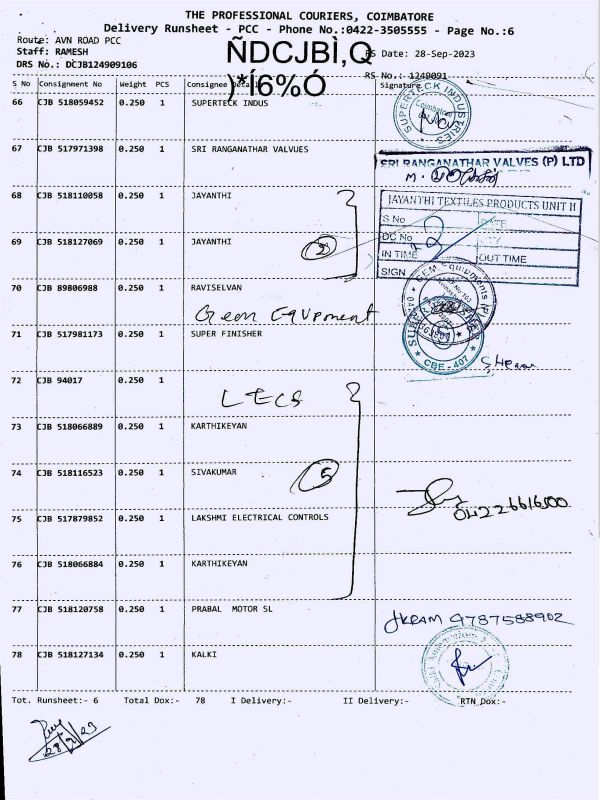 THE PROFESSIONAL COURIERS, COIMBATORE
Delivery Runsheet - PCC - Phone No.:0422-3505555 - Page No.:6
Route: AVN ROAD PCC
Staff: RAMESH
ÑDCJBÌ,Q
RS Date: 28-Sep-2023
DRS No.: DCJB124909106
)*Í6%Ó
RS No.: 1249091
S No Consignment No Weight PCS Consignee Details Signature
66 CJB 518059452 0.250 1 SUPERTECK INDUS
SUPERTECK INDUSTRIES
Coimbatore
67 CJB 517971398 0.250 1 SRI RANGANATHAR VALVUES
SRI RANGANATHAR VALVES (P) LTD
68 CJB 518110058 0.250 1 JAYANTHI
JAYANTHI TEXTILES PRODUCTS UNIT II
S No DATE
DC No
IN TIME OUT TIME
SIGN
69 CJB 518127069 0.250 1 JAYANTHI
2
70 CJB 89806988 0.250 1 RAVISELVAN
Geem EQUpment
GEM Equipments (P)
71 CJB 517981173 0.250 1 SUPER FINISHER
CBE-407
72 CJB 94017 0.250 1
LECS
73 CJB 518066889 0.250 1 KARTHIKEYAN
74 CJB 518116523 0.250 1 SIVAKUMAR
5
04226616500
75 CJB 517879852 0.250 1 LAKSHMI ELECTRICAL CONTROLS
76 CJB 518066884 0.250 1 KARTHIKEYAN
77 CJB 518120758 0.250 1 PRABAL MOTOR SL
9787588902
78 CJB 518127134 0.250 1 KALKI
Tot. Runsheet:- 6 Total Dox:- 78 I Delivery:- II Delivery:- RTN Dox:-
28/9/23